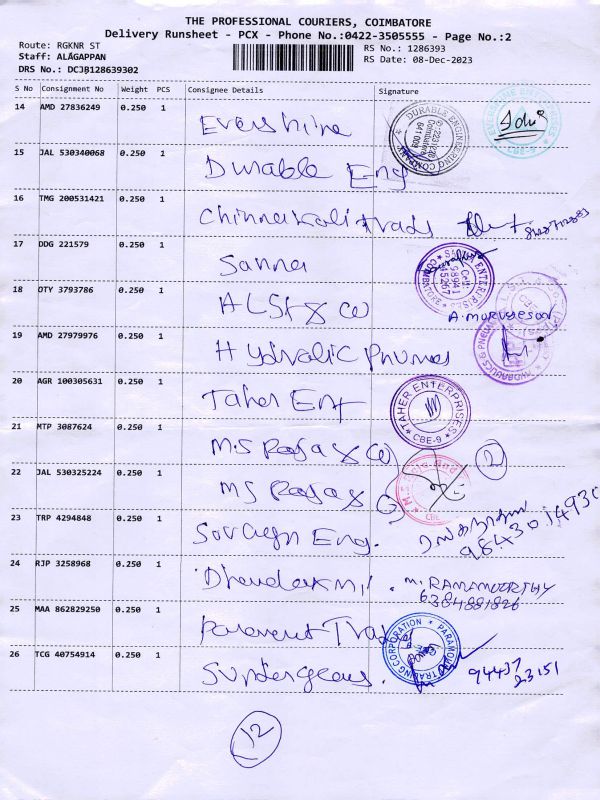 THE PROFESSIONAL COURIERS, COIMBATORE
Delivery Runsheet - PCX - Phone No.:0422-3505555 - Page No.:2
Route: RGKNR ST
RS No.: 1286393
Staff: ALAGAPPAN
RS Date: 08-Dec-2023
DRS No.: DCJB128639302
S No Consignment No Weight PCS Consignee Details Signature
14 AMD 27836249 0.250 1 Evershine
15 JAL 530340068 0.250 1 Durable Eng
DURABLE ENGINEERING COMPANY
Coimbatore
641 009
16 TMG 200531421 0.250 1 Chinnakali trads
17 DDG 221579 0.250 1 Sanna
18 OTY 3793786 0.250 1 & co A. MURUGESAN
19 AMD 27979976 0.250 1 Hydralic Pnumes
20 AGR 100305631 0.250 1 Taher Ent
TAHER ENTERPRISES
CBE-9
21 MTP 3087624 0.250 1 M.S Raja & co 2
22 JAL 530325224 0.250 1 MS Raja & Co
23 TRP 4294848 0.250 1 Eng.
9843014930
24 RJP 3258968 0.250 1 M. RAMAMOORTHY
6384881826
25 MAA 862829250 0.250 1 Paramunt Trad
PARAMOUNT TRADING CORPORATION
26 TCG 40754914 0.250 1 Sundergears. 94437
23151
12